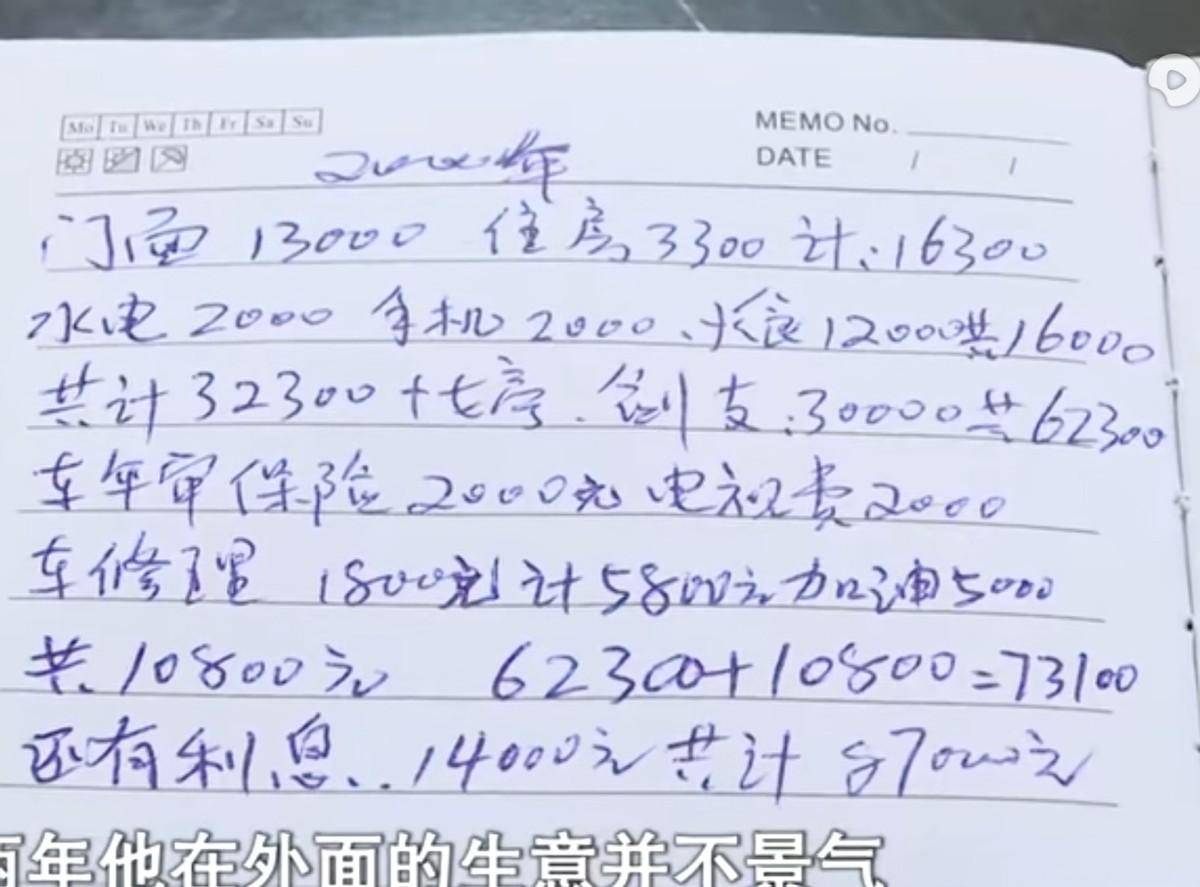 Mo Tu We Th Fr Sa Su
MEMO No.
DATE / /
2000年
门面 13000 住房 3300 计:16300
水电 2000 手机 2000、伙食 12000共16000
共计 32300 + 支:30000 共 62300
车年审保险 2000元 电视费 2000
车修理 1800元 计 5800元 加油 5000
共 10800元 62300+10800=73100
还有利息..14000元 共计 87000元
两年他在外面的生意并不景气